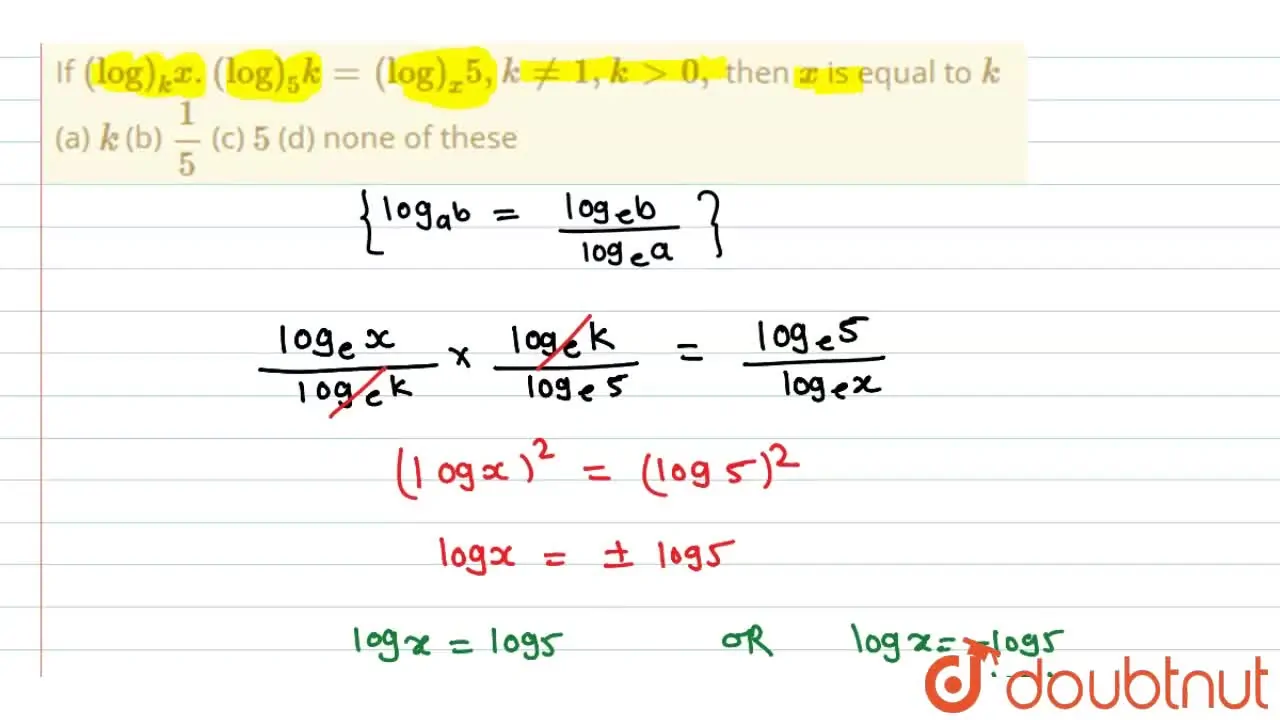 If (log)ₖx. (log)₅k = (log)ₓ5, k ≠ 1, k > 0, then x is equal to k
(a) k (b) 1/5 (c) 5 (d) none of these
{logₐb = logₑb / logₑa}
logₑx / logₑk × logₑk / logₑ5 = logₑ5 / logₑx
(logx)² = (log5)²
logx = ± log5
logx = log5 OR logx = -log5
doubtnut